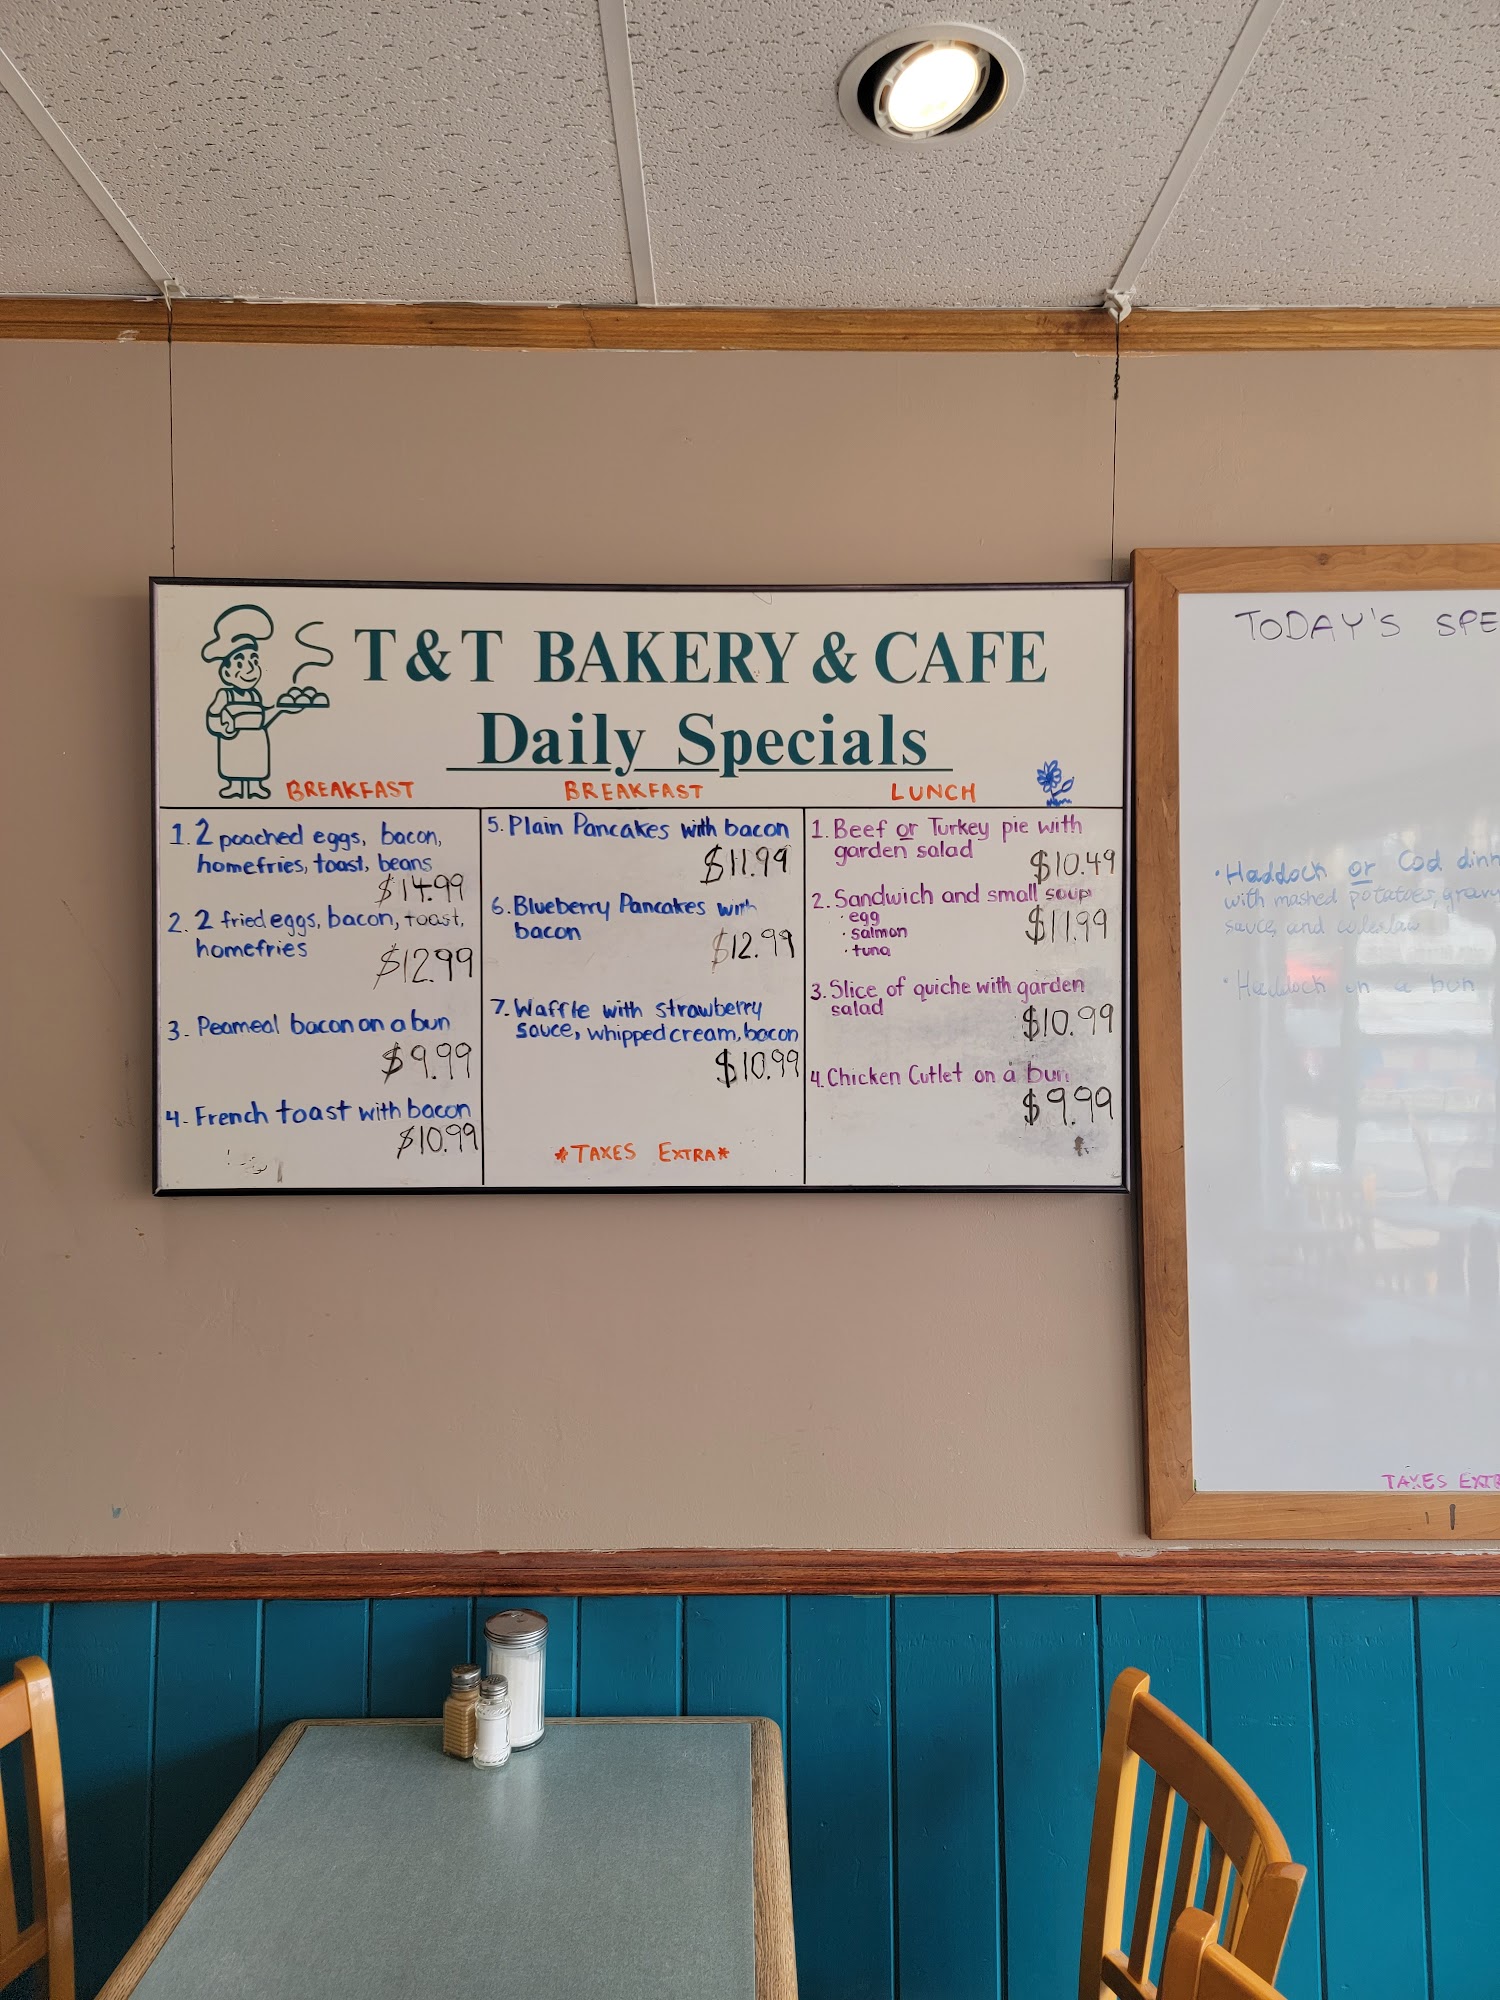 T&T BAKERY & CAFE
Daily Specials
BREAKFAST
1. 2 poached eggs, bacon,
homefries, toast, beans
$14.99
2. 2 fried eggs, bacon, toast,
homefries
$12.99
3. Peameal bacon on a bun
$9.99
4. French toast with bacon
$10.99
BREAKFAST
5. Plain Pancakes with bacon
$11.99
6. Blueberry Pancakes with
bacon
$12.99
7. Waffle with strawberry
sauce, whipped cream, bacon
$10.99
*TAXES EXTRA*
LUNCH
1. Beef or Turkey pie with
garden salad
$10.49
2. Sandwich and small soup
· egg
$11.99
· salmon
· tuna
3. Slice of quiche with garden
salad
$10.99
4. Chicken Cutlet on a bun
$9.99
TODAY'S SPE
· Haddock or Cod dinn
with mashed potatoes, gravy
sauce, and coleslaw
· Haddock on a bun
TAXES EXTR